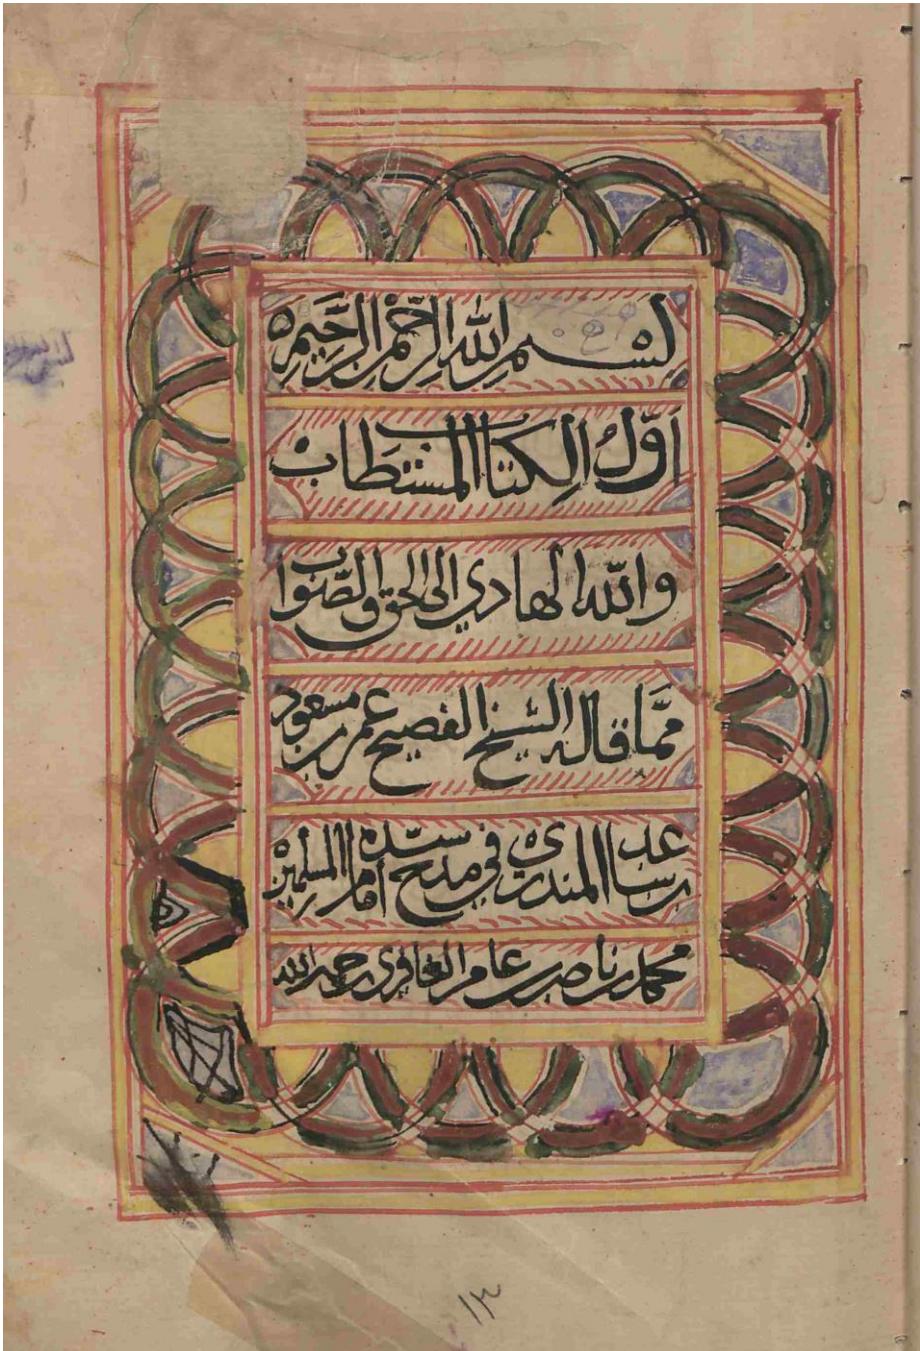 بسم الله الرحمن الرحيم
أوّل الكتاب المستطاب
والله الهادي إلى الحق والصّواب
ممّا قاله الشيخ الفصيح عمر بن مسعود
بن ساعد المنذري في مدح سيّده إمام المسلمين
محمد بن ناصر بن عامر الغافري رحمه الله
١٣